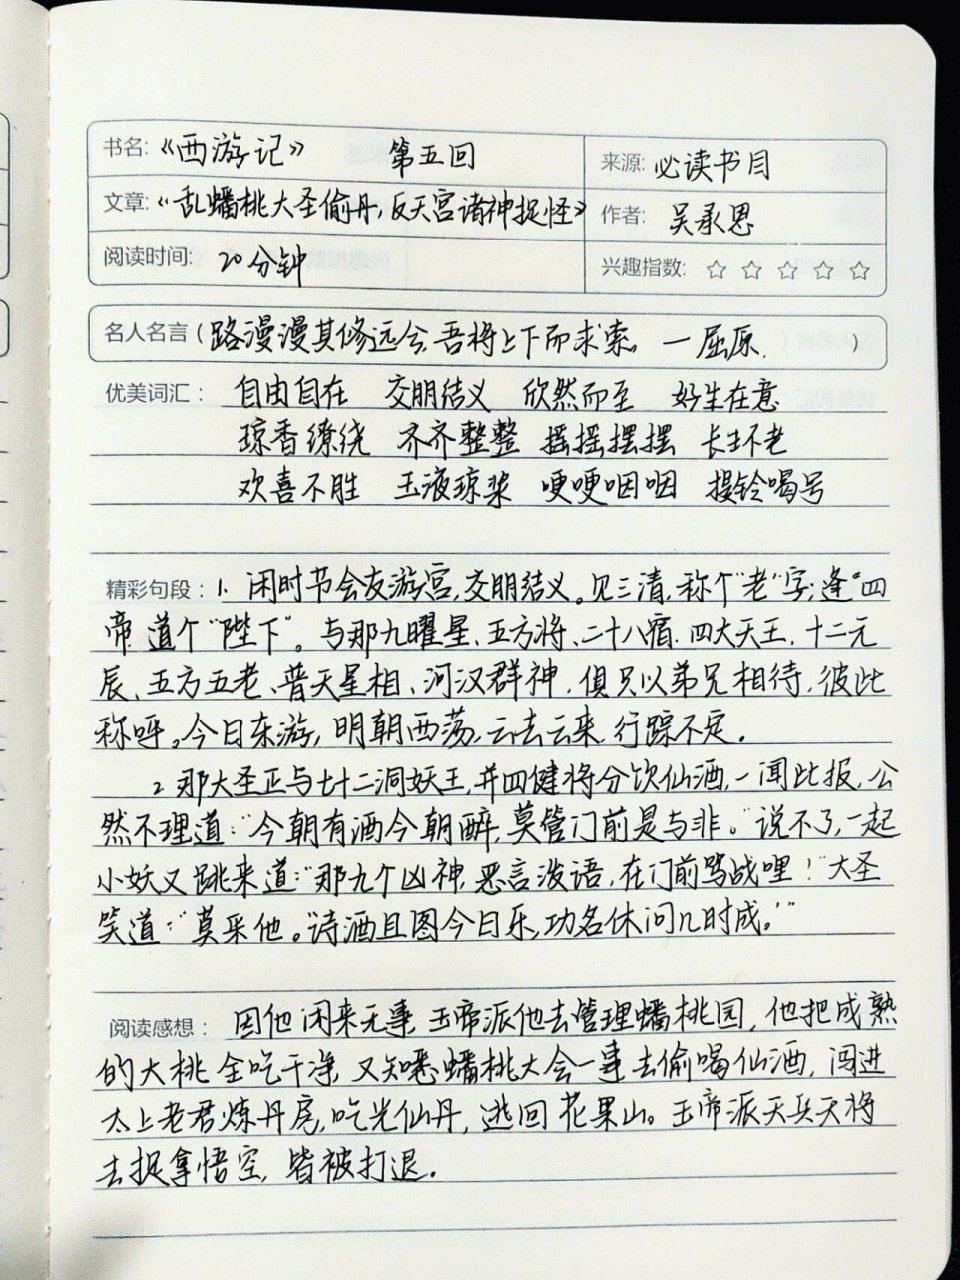 书名:《西游记》 第五回
来源: 必读书目
文章:《乱蟠桃大圣偷丹,反天宫诸神捉怪》
作者: 吴承恩
阅读时间: 20分钟
兴趣指数: ☆ ☆ ☆ ☆ ☆
名人名言(路漫漫其修远兮,吾将上下而求索。—屈原. )
优美词汇: 自由自在 交朋结义 欣然而至 好生在意
琼香缭绕 齐齐整整 摇摇摆摆 长生不老
欢喜不胜 玉液琼浆 哽哽咽咽 提铃喝号
精彩句段: 1. 闲时节会友游宫,交朋结义。见三清,称个“老”字;逢“四
帝,道个“陛下”。与那九曜星、五方将、二十八宿、四大天王、十二元
辰、五方五老、普天星相、河汉群神,俱只以弟兄相待,彼此
称呼。今日东游,明朝西荡,云去云来,行踪不定.
2. 那大圣正与七十二洞妖王,并四健将分饮仙酒,一闻此报,公
然不理道:“今朝有酒今朝醉,莫管门前是与非。”说不了,一起
小妖又跳来道:“那九个凶神,恶言泼语,在门前骂战哩!”大圣
笑道:“莫采他。“诗酒且图今日乐,功名休问几时成。’”
阅读感想: 因他闲来无事,玉帝派他去管理蟠桃园,他把成熟
的大桃全吃干净,又知悉蟠桃大会一事去偷喝仙酒,闯进
太上老君炼丹房,吃光仙丹,逃回花果山。玉帝派天兵天将
去捉拿悟空,皆被打退.